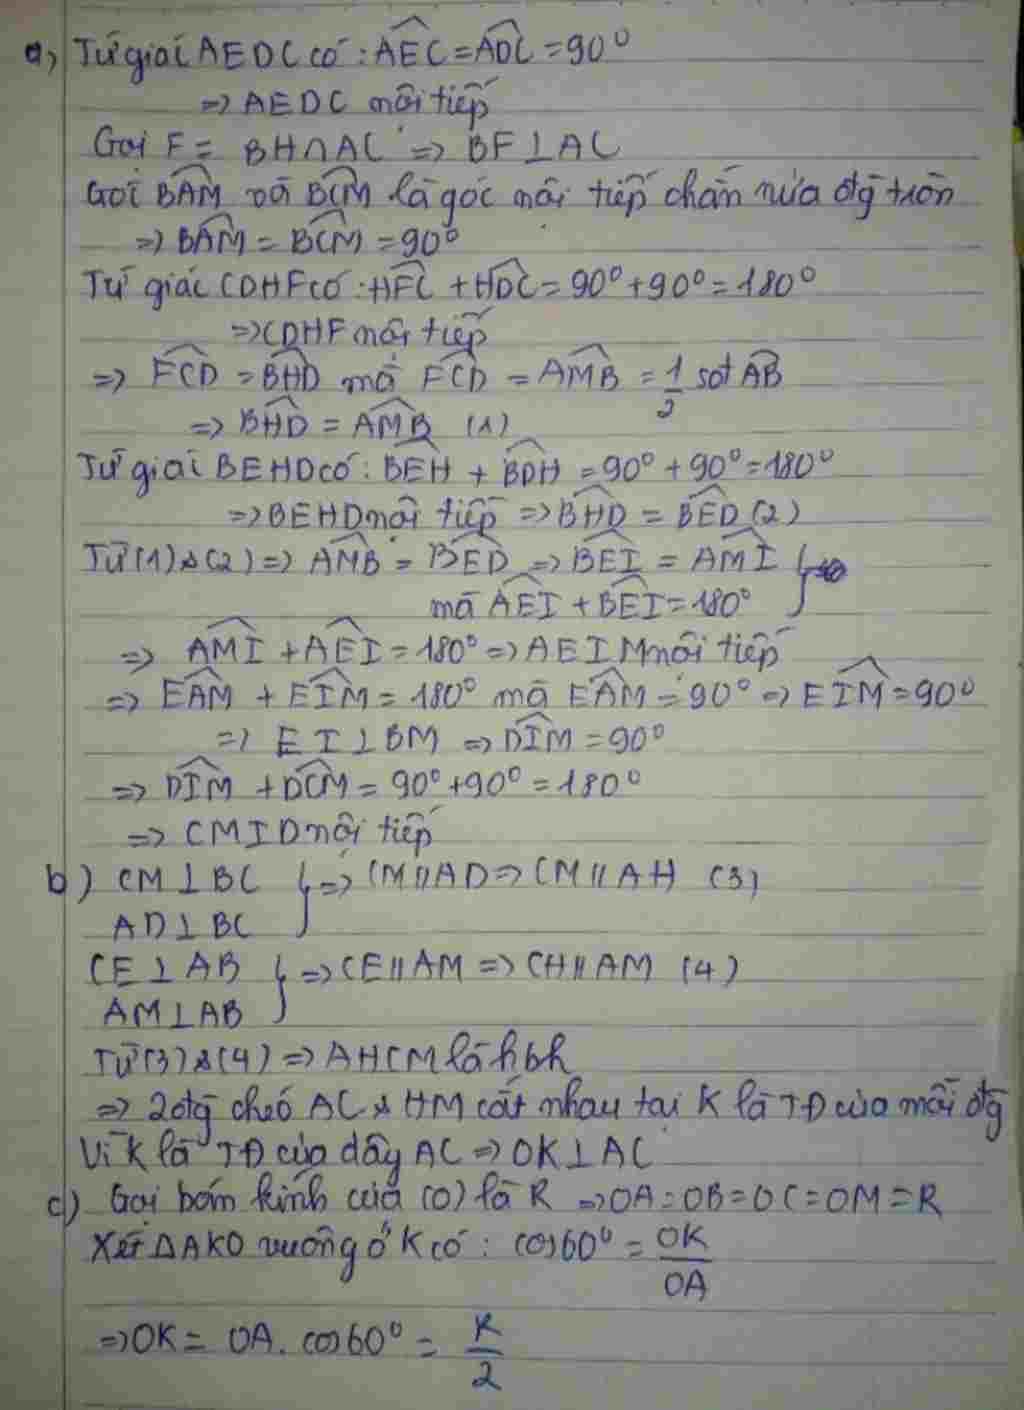 a, Tứ giác AEDC có : AEC = ADC = 90°
=> AEDC nội tiếp
Gọi F = BH ∩ AC => BF ⊥ AC
Gọi BAM và BCM là góc nội tiếp chắn nửa đg tròn
=> BAM = BCM = 90°
Tứ giác CDHF có : HFC + HDC = 90° + 90° = 180°
=> CDHF nội tiếp
=> FCD = BHD mà FCD = AMB = 1/2 sđ AB
=> BHD = AMB (1)
Tứ giác BEHD có : BEH + BDH = 90° + 90° = 180°
=> BEHD nội tiếp => BHD = BED (2)
Từ (1) & (2) => AMB = BED => BEI = AMI
mà AEI + BEI = 180°
=> AMI + AEI = 180° => AEIM nội tiếp
=> EAM + EIM = 180° mà EAM = 90° => EIM = 90°
=> EI ⊥ BM => DIM = 90°
=> DIM + DCM = 90° + 90° = 180°
=> CMID nội tiếp
b) CM ⊥ BC } => CM // AD => CM // AH (3)
AD ⊥ BC
CE ⊥ AB } => CE // AM => CH // AM (4)
AM ⊥ AB
Từ (3) & (4) => AHCM là hbh
=> 2 đg chéo AC & HM cắt nhau tại K là TĐ của mỗi đg
Vì K là TĐ của dây AC => OK ⊥ AC
c) Gọi bán kính của (O) là R => OA = OB = OC = OM = R
Xét ΔAKO vuông ở K có : cos60° = OK/OA
=> OK = OA. cos60° = R/2